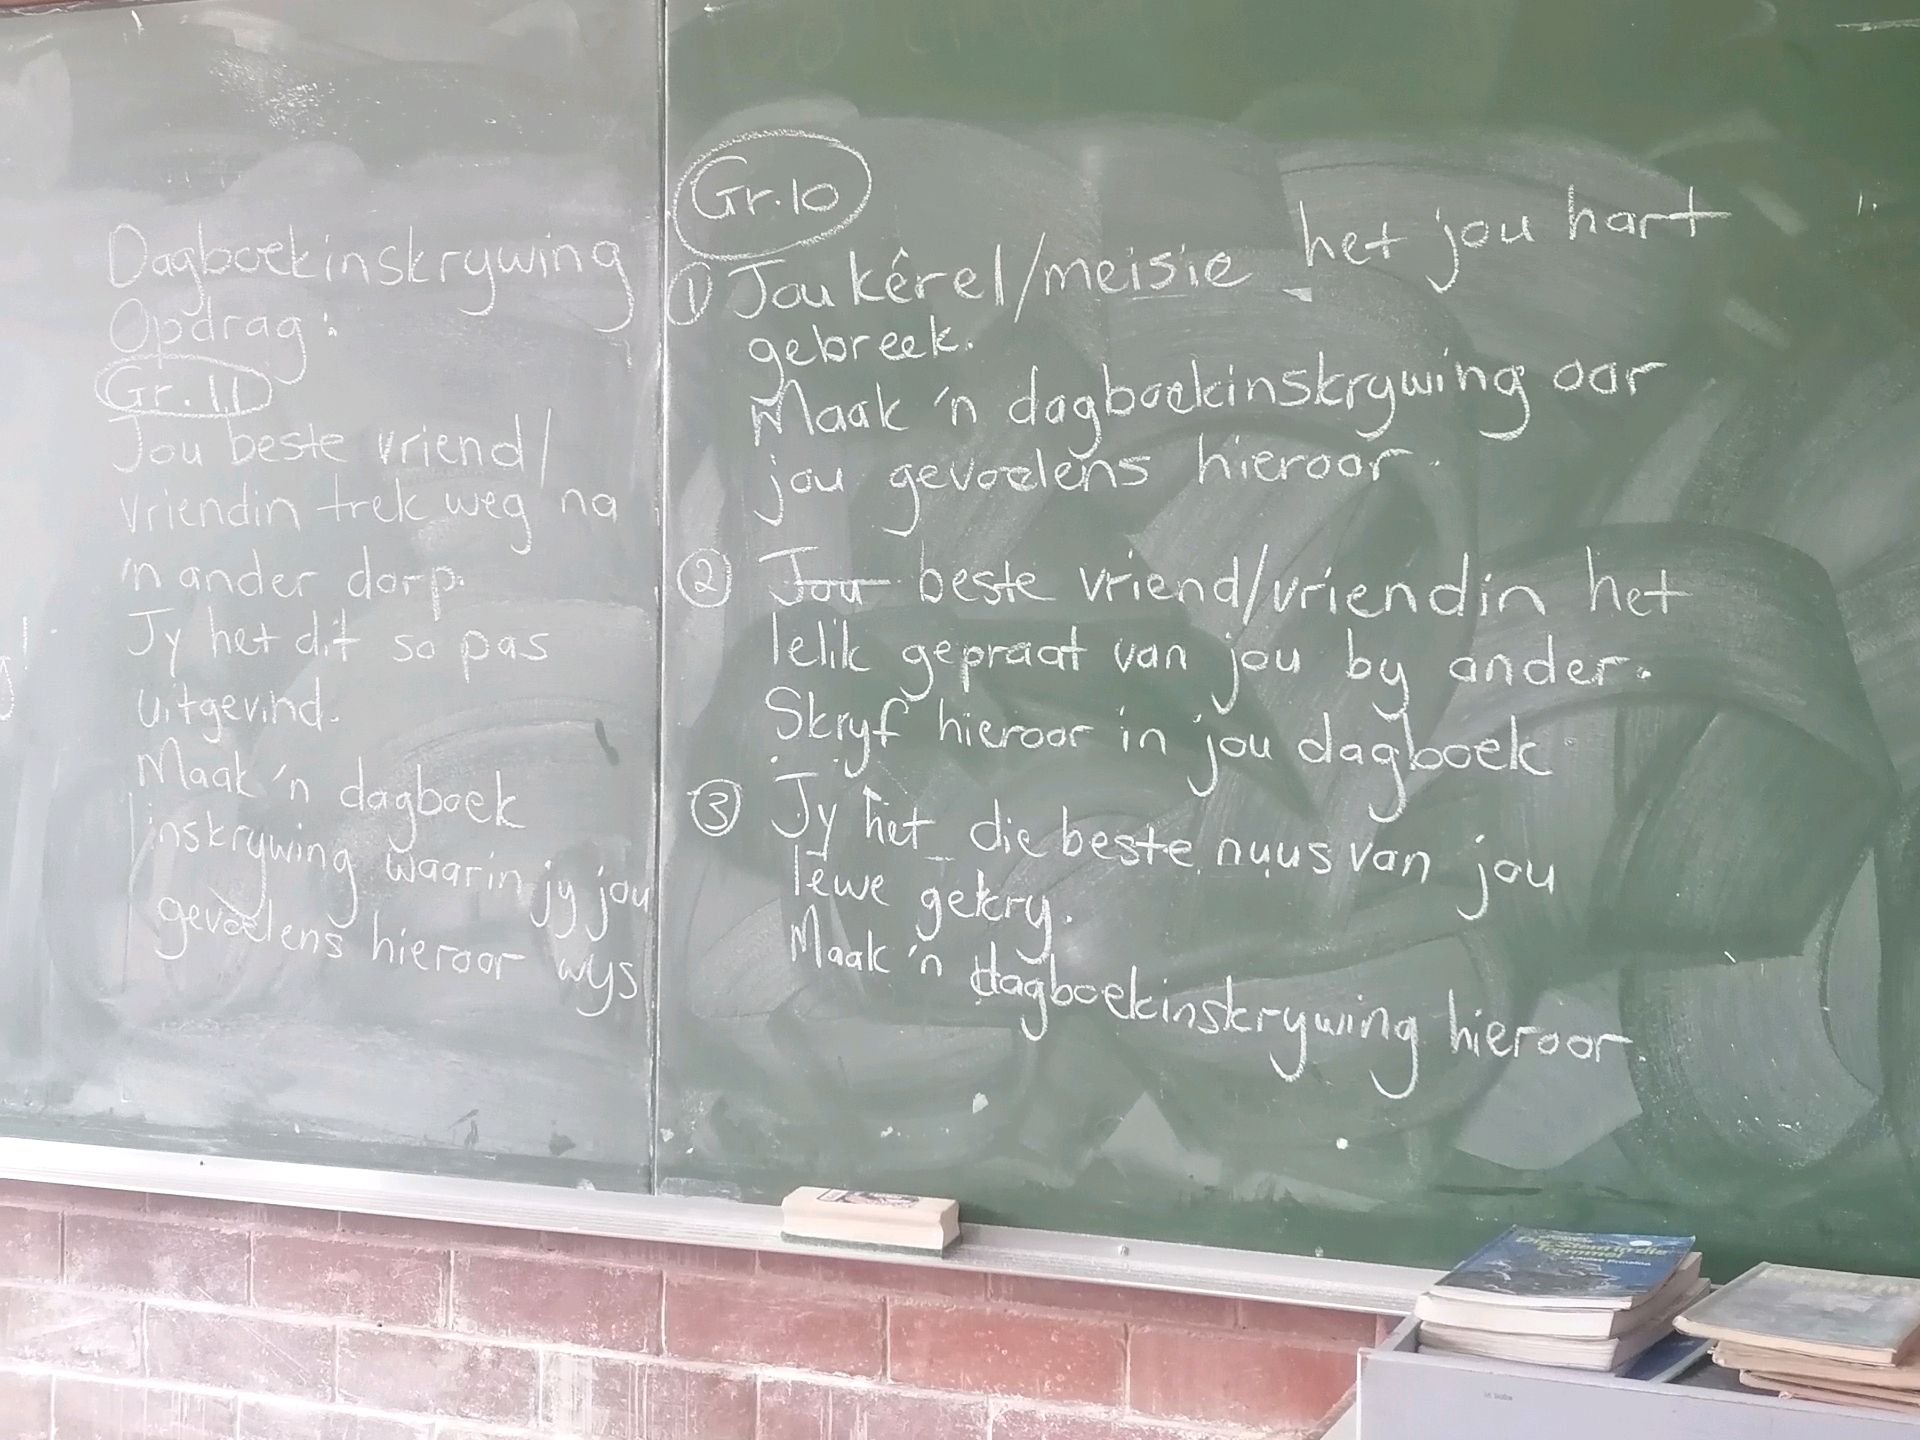 Dagboekinskrywing
Opdrag:
Gr. 11
Jou beste vriend/
vriendin trek weg na
'n ander dorp.
Jy het dit so pas
uitgevind.
Maak 'n dagboek
inskrywing waarin jy jou
gevoelens hieroor wys
Gr. 10
① Jou kêrel/meisie het jou hart
gebreek.
Maak 'n dagboekinskrywing oor
jou gevoelens hieroor.
② Jou beste vriend/vriendin het
lelik gepraat van jou by ander.
Skryf hieroor in jou dagboek
③ Jy het die beste nuus van jou
lewe gekry.
Maak 'n dagboekinskrywing hieroor.